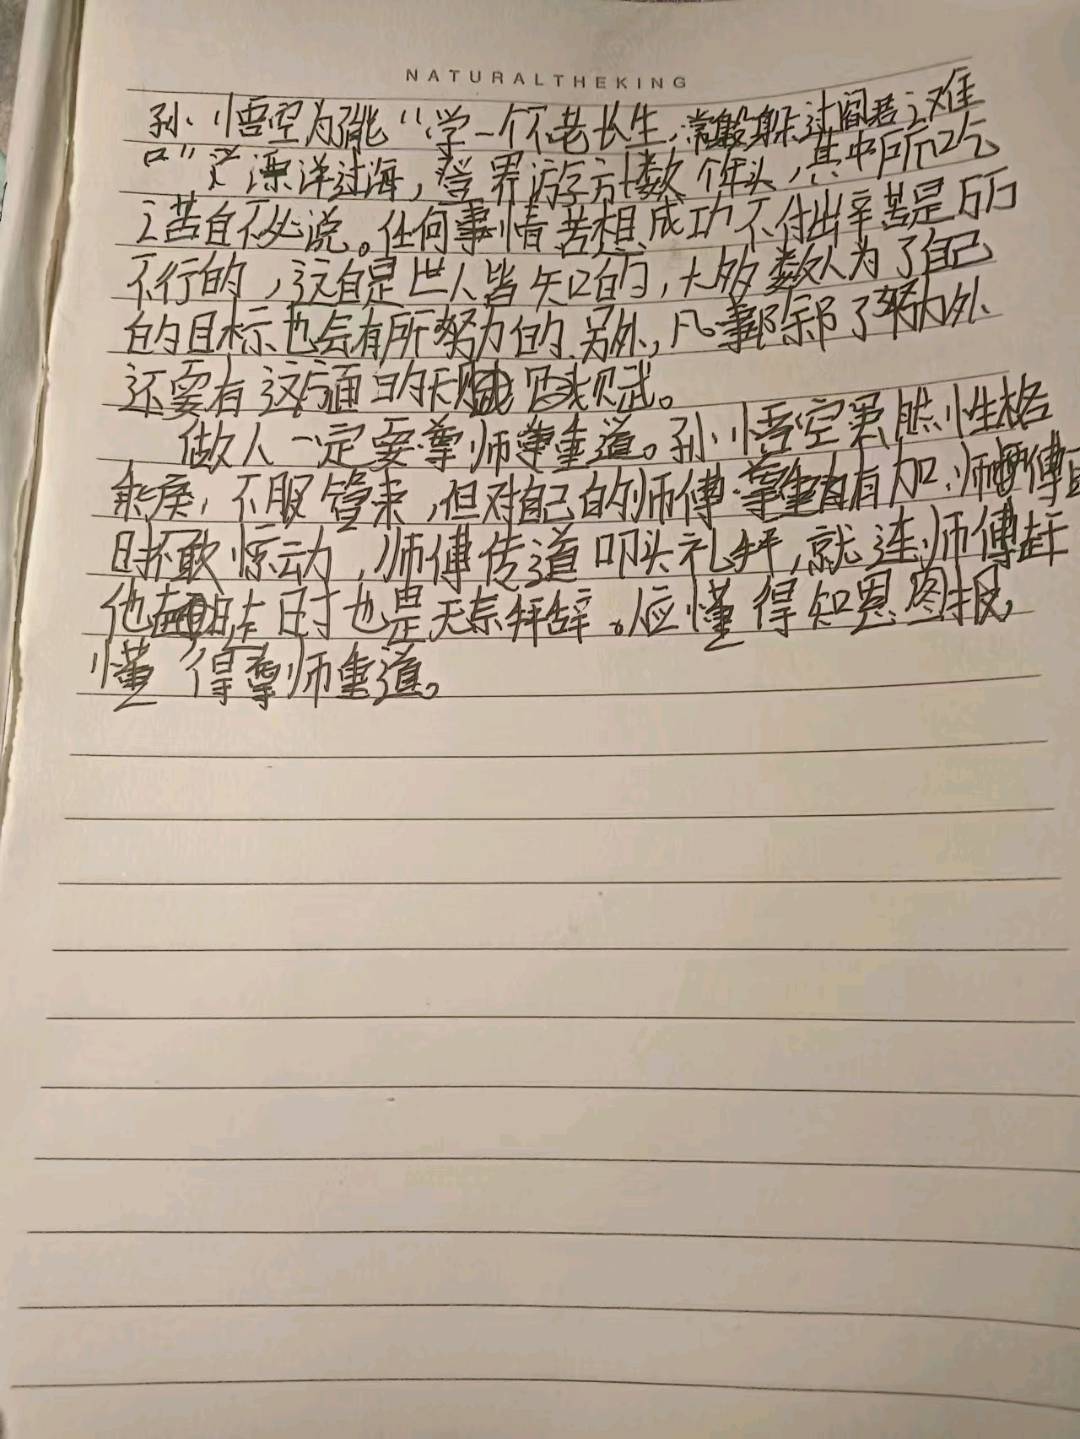 NATURALTHEKING
孙悟空为能"学一个不老长生,常躲过阎君之难
"漂洋过海,登界游方十数个年头,其中所吃
之苦自不必说。任何事情若想成功不付出辛苦是万万
不行的,这自是世人皆知的,大多数人为了自己
的目标也会有所努力的.另外,凡事都除了努力外
还要有这方面的天赋。
做人一定要尊师重道。孙悟空虽然性格
乖戾,不服管束,但对自己的师傅尊重有加.师傅
时不敢惊动,师傅传道叩头礼拜,就连师傅赶
他走时也是无奈拜辞。应懂得知恩图报,
懂得尊师重道。